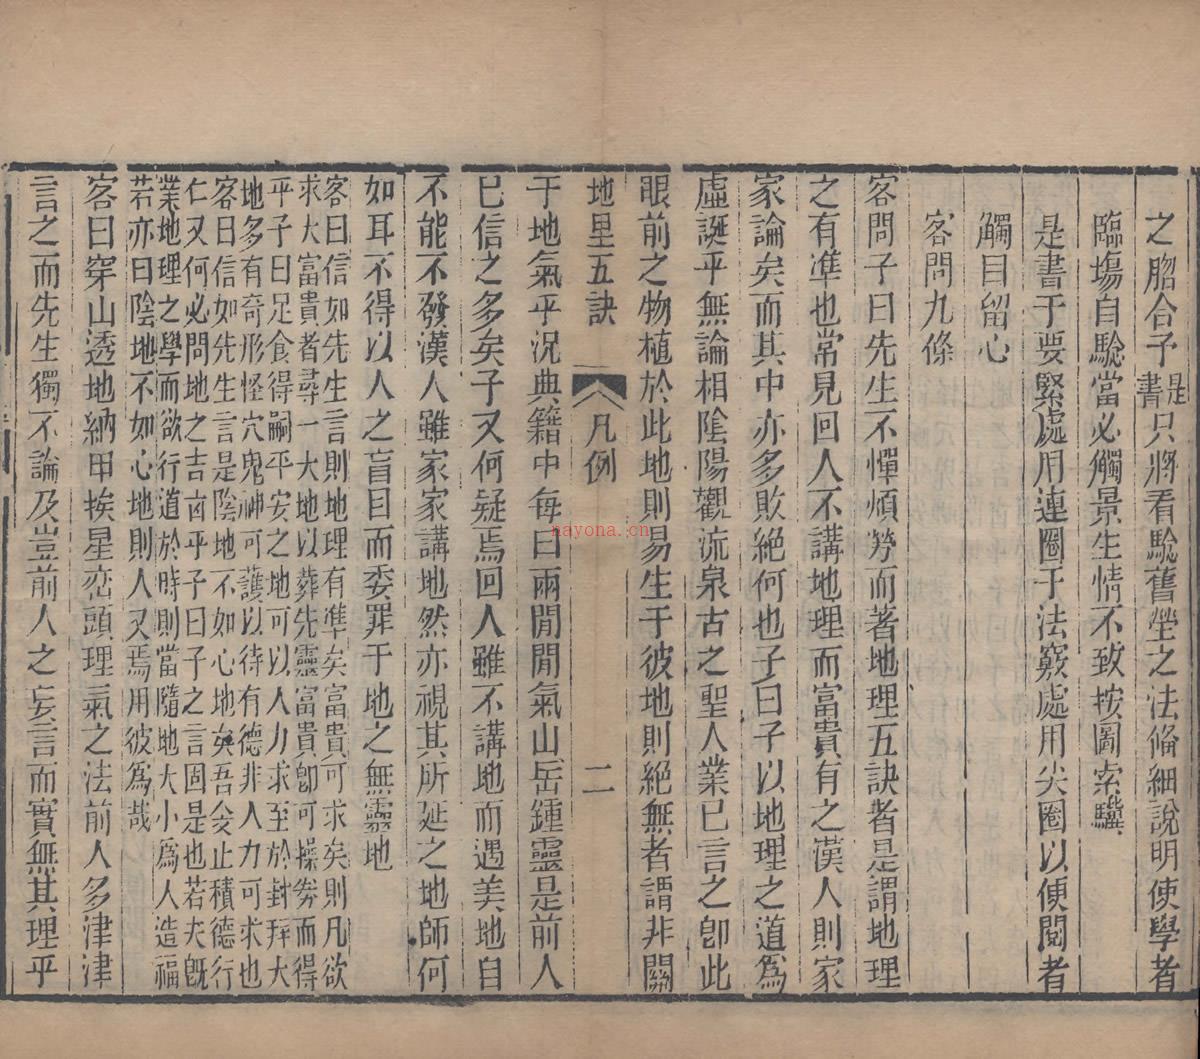 之脗合予是書只將看驗舊塋之法俻細說明使學者
臨塲自驗當必觸景生情不致按圖索驥
是書于要緊處用連圈于法竅處用尖圈以便閱者
觸目留心
客問九條
客問子曰先生不憚煩勞而著地理五訣者是謂地理
之有準也常見回人不講地理而富貴有之漢人則家
家論矣而其中亦多敗絕何也子曰子以地理之道為
虛誕乎無論相陰陽觀流泉古之聖人業已言之即此
眼前之物植於此地則易生于彼地則絕無者謂非關
地里五訣 凡例 二
于地氣乎況典籍中每曰兩間間氣山岳鍾靈是前人
已信之多矣子又何疑焉回人雖不講地而遇美地自
不能不發漢人雖家家講地然亦視其所延之地師何
如耳不得以人之盲目而委罪于地之無靈也
客曰信如先生言則地理有準矣富貴可求矣則凡欲
求大富貴者尋一大地以葬先靈富貴即可操券而得
乎子曰足食得嗣平安之地可以人力求至於封拜大
地多有奇形怪穴鬼神可護以待有德非人力可求也
客曰信如先生言是陰地不如心地矣吾人止積德行
仁又何必問地之吉凶乎子曰子之言固是也若夫旣
業地理之學而欲行道於時則當隨地大小為人造福
若亦曰陰地不如心地則人又焉用彼為哉
客曰穿山透地納甲挨星巒頭理氣之法前人多津津
言之而先生獨不論及豈前人之妄言而實無其理乎
nayona.cn